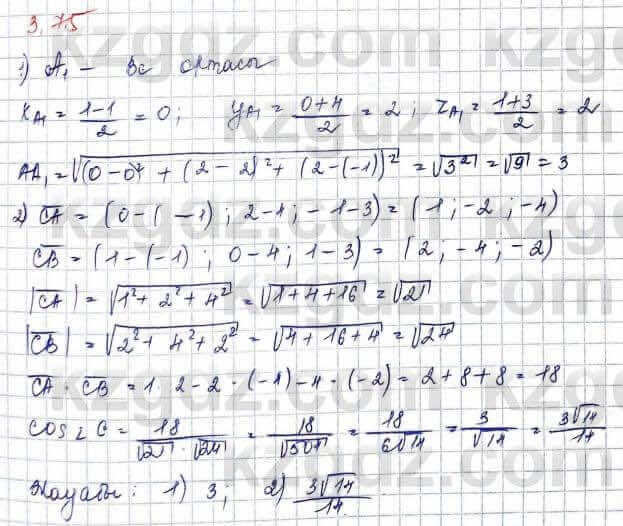 3.75
1) A₁ – BC ортасы
x_{A₁} = \frac{1-1}{2} = 0; y_{A₁} = \frac{0+4}{2} = 2; z_{A₁} = \frac{1+3}{2} = 2
AA₁ = √((0-0)² + (2-2)² + (2-(-1))²) = √3² = √9 = 3
2) \overline{CA} = (0-(-1); 2-1; -1-3) = (1; -2; -4)
\overline{CB} = (1-(-1); 0-4; 1-3) = (2; -4; -2)
|\overline{CA}| = √(1²+2²+4²) = √(1+4+16) = √21
|\overline{CB}| = √(2²+4²+2²) = √(4+16+4) = √24
\overline{CA} · \overline{CB} = 1·2-2·(-1)-4·(-2) = 2+8+8 = 18
cos∠C = \frac{18}{√21·√24} = \frac{18}{√504} = \frac{18}{6√14} = \frac{3}{√14} = \frac{3√14}{14}
Жауабы: 1) 3; 2) \frac{3√14}{14}
kzgdz.com